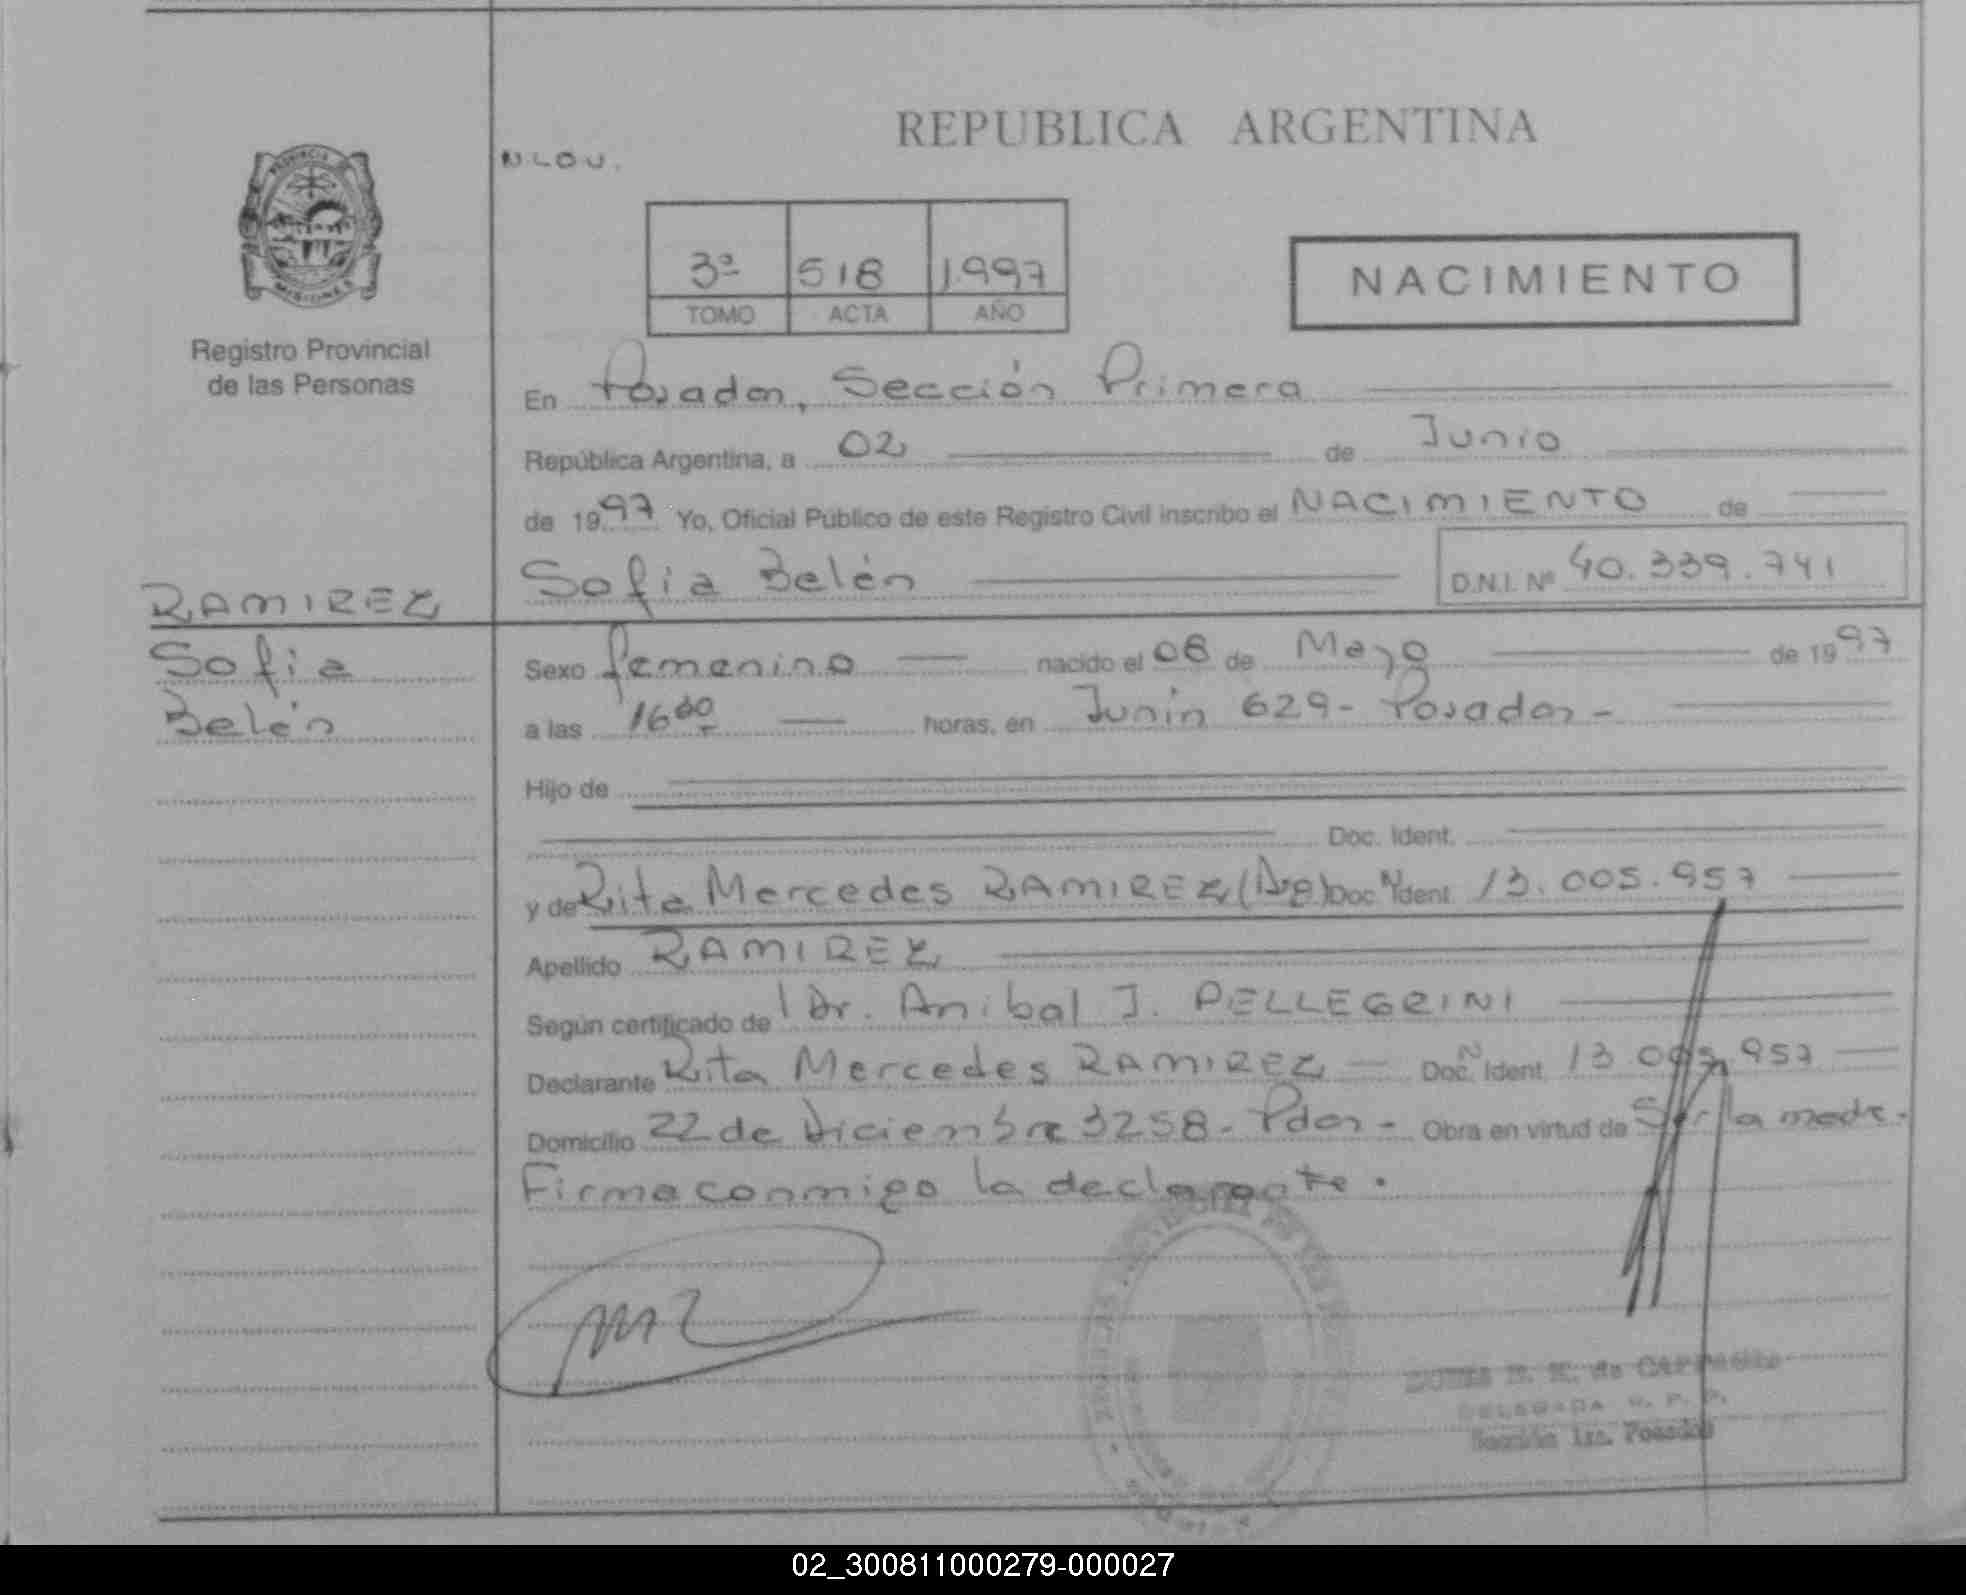 REPUBLICA ARGENTINA
N.LOU.
3ª 518 1.997
TOMO ACTA AÑO
NACIMIENTO
PROVINCIA DE
MISIONES
Registro Provincial
de las Personas
En Posadas, Sección Primera
República Argentina, a 02 de Junio
de 1997 Yo, Oficial Público de este Registro Civil inscribo el NACIMIENTO de
Sofia Belén D.N.I. Nº 40.339.741
RAMIREZ
Sofia
Belén
Sexo femenino nacido el 08 de Mayo de 1997
a las horas, en Junin 629- Posadas-
Hijo de
Doc. Ident.
y de Rita Mercedes RAMIREZ (Arg) Doc. Ident. 13.005.957
Apellido RAMIREZ
Según certificado de Dr. Anibal J. PELLEGRINI
Declarante Rita Mercedes RAMIREZ Doc. Ident. 13.005.957
Domicilio 22 de Diciembre 3258- Pdas- Obra en virtud de Ser la madre.
Firma conmigo la declarante.
DELEGADA R. P. P.
Sección 1ra. Posadas
02_300811000279-000027